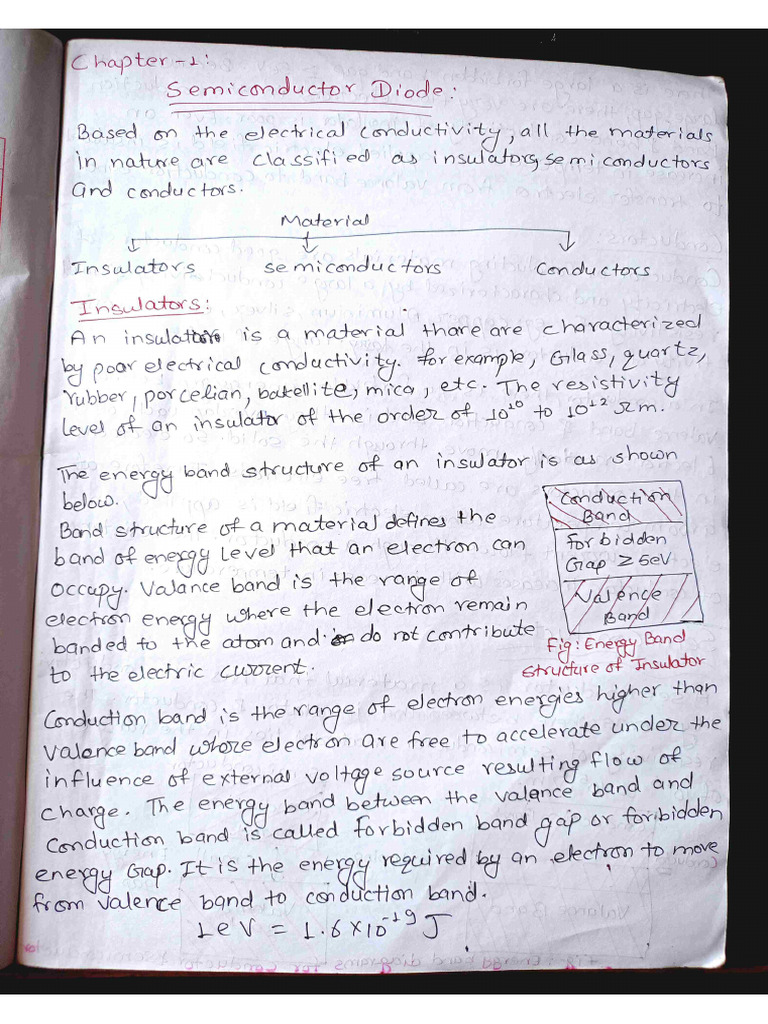 Chapter-1:
Semiconductor Diode:
Based on the electrical conductivity, all the materials
in nature are classified as insulators, semiconductors
and conductors.
Material
Insulators semiconductors Conductors
Insulators:
An insulator is a material thare are characterized
by poor electrical conductivity. For example, Glass, quartz,
rubber, porcelian, bakellite, mica, etc. The resistivity
level of an insulator of the order of 10¹⁰ to 10¹² Ωm.
The energy band structure of an insulator is as shown
below.
Band structure of a material defines the
band of energy level that an electron can
occupy. Valance band is the range of
electron energy where the electron remain
banded to the atom and do not contribute
to the electric current.
Conduction
Band
Forbidden
Gap ≥ 5eV
Valence
Band
Fig: Energy Band
Structure of Insulator
Conduction band is the range of electron energies higher than
valance band where electron are free to accelerate under the
influence of external voltage source resulting flow of
charge. The energy band between the valance band and
Conduction band is called forbidden band gap or forbidden
energy Gap. It is the energy required by an electron to move
from valence band to conduction band.
1eV = 1.6×10⁻¹⁹ J